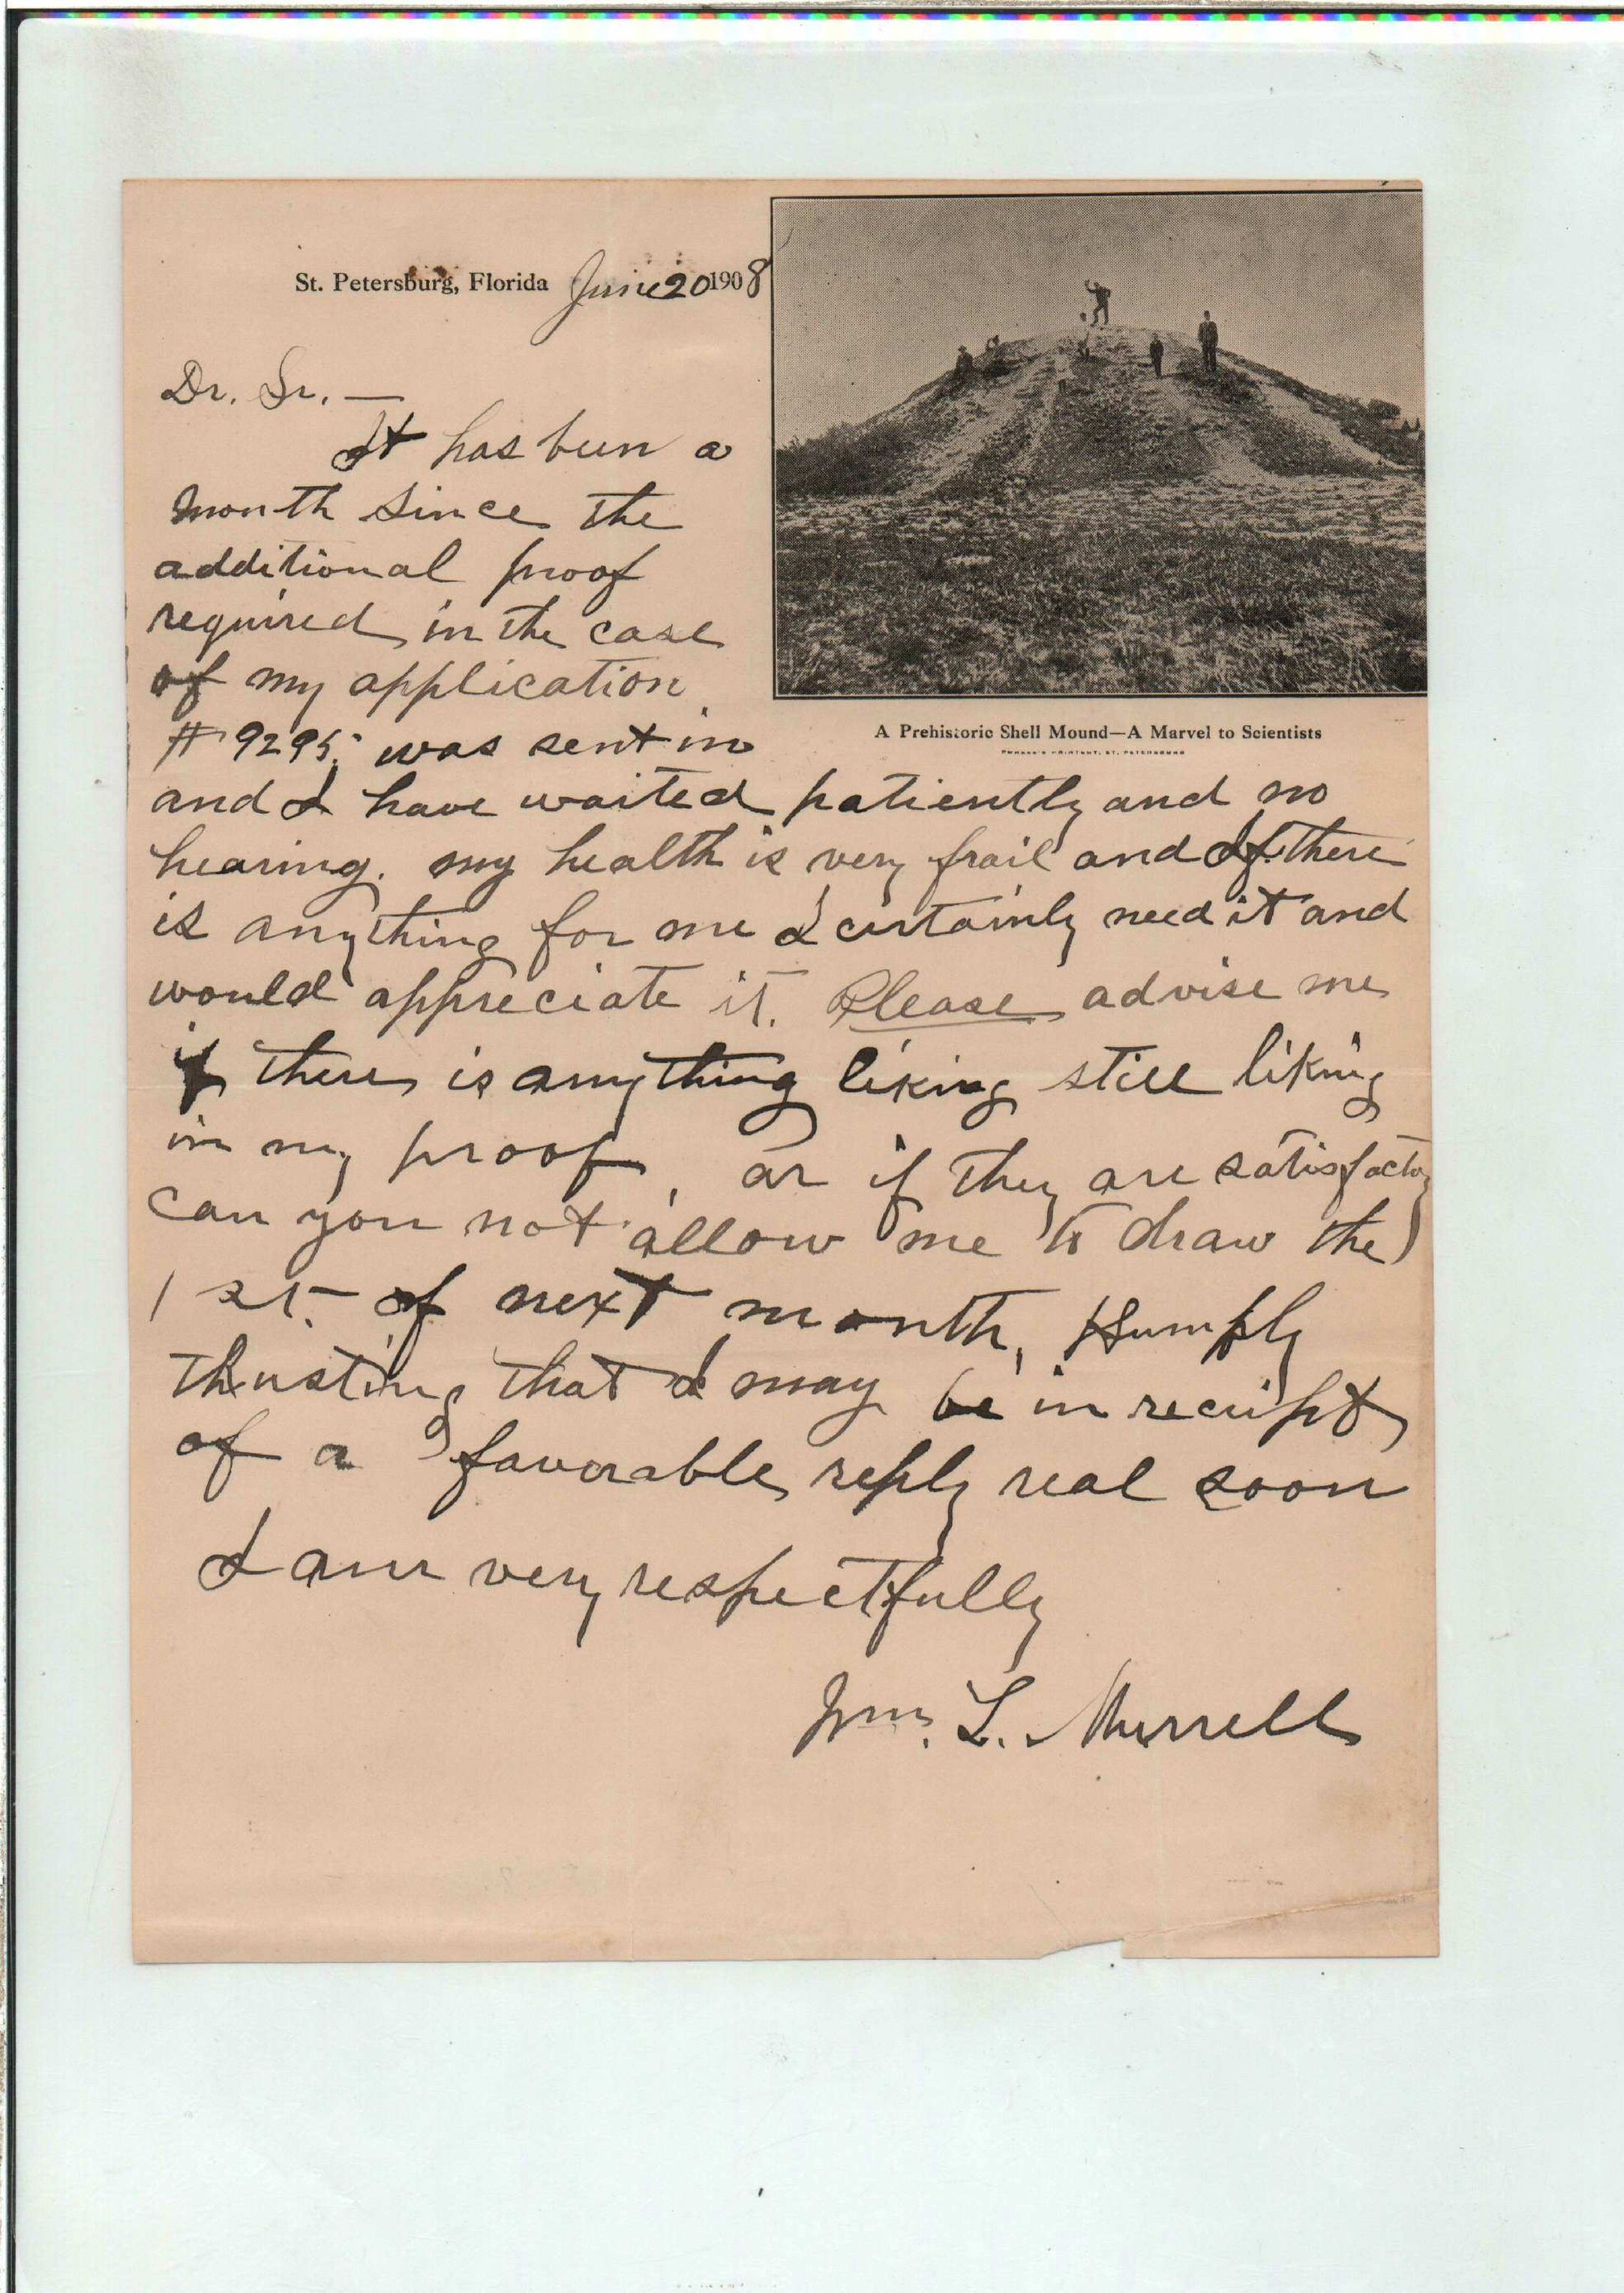 St. Petersburg, Florida June 20 1908
Dr. Sr. —
It has been a
month since the
additional proof
required in the case
of my application
# 9295. was sent in
A Prehistoric Shell Mound—A Marvel to Scientists
and I have waited patiently and no
hearing. my health is very frail and If there
is anything for me I certainly need it and
would appreciate it. Please advise me
if there is anything liking still liking
in my proof, or if they are satisfactory
can you not allow me to draw the
1st. of next month, Humply
thusting that I may be in receipt
of a favorable reply real soon
I am very respectfully
Wm. L. Murrell